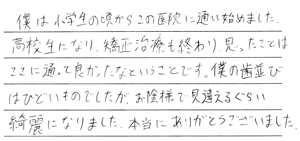 僕は小学生の頃からこの医院に通い始めました。
高校生になり、矯正治療も終わり、思ったことは
ここに通って良かったなということです。僕の歯並び
はひどいものでしたが、お陰様で見違えるぐらい
綺麗になりました。本当にありがとうございました。